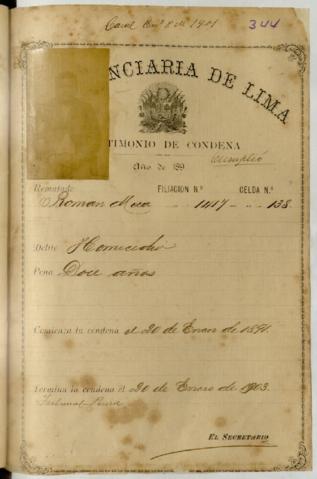 344
NCIARIA DE LIMA
TIMONIO DE CONDENA
Cumplió
Año de 189
Rematado FILIACION N.º CELDA N.º
Roman 1417 138
Delito Homicidio
Pena Doce años
Comienza su condena el 20 de Enero de 1891.
Termina la condena el 20 de Enero de 1903.
Tribunal Piura
EL SECRETARIO